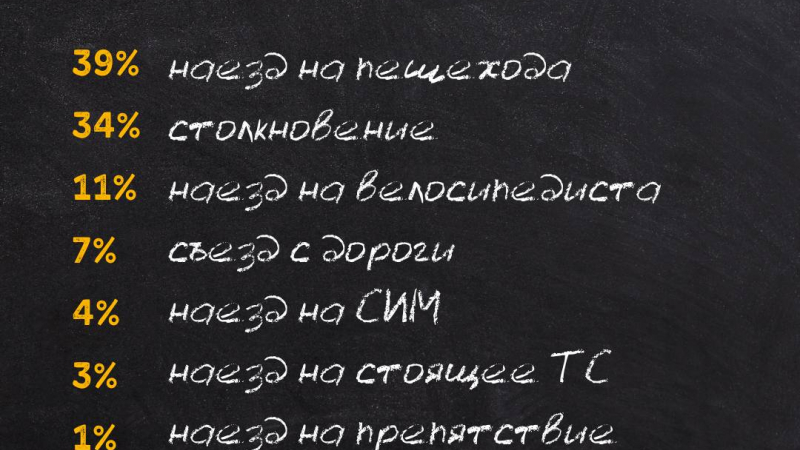 39% наезд на пешехода
34% столкновение
11% наезд на велосипедиста
7% съезд с дороги
4% наезд на СИМ
3% наезд на стоящее ТС
1% наезд на препятствие